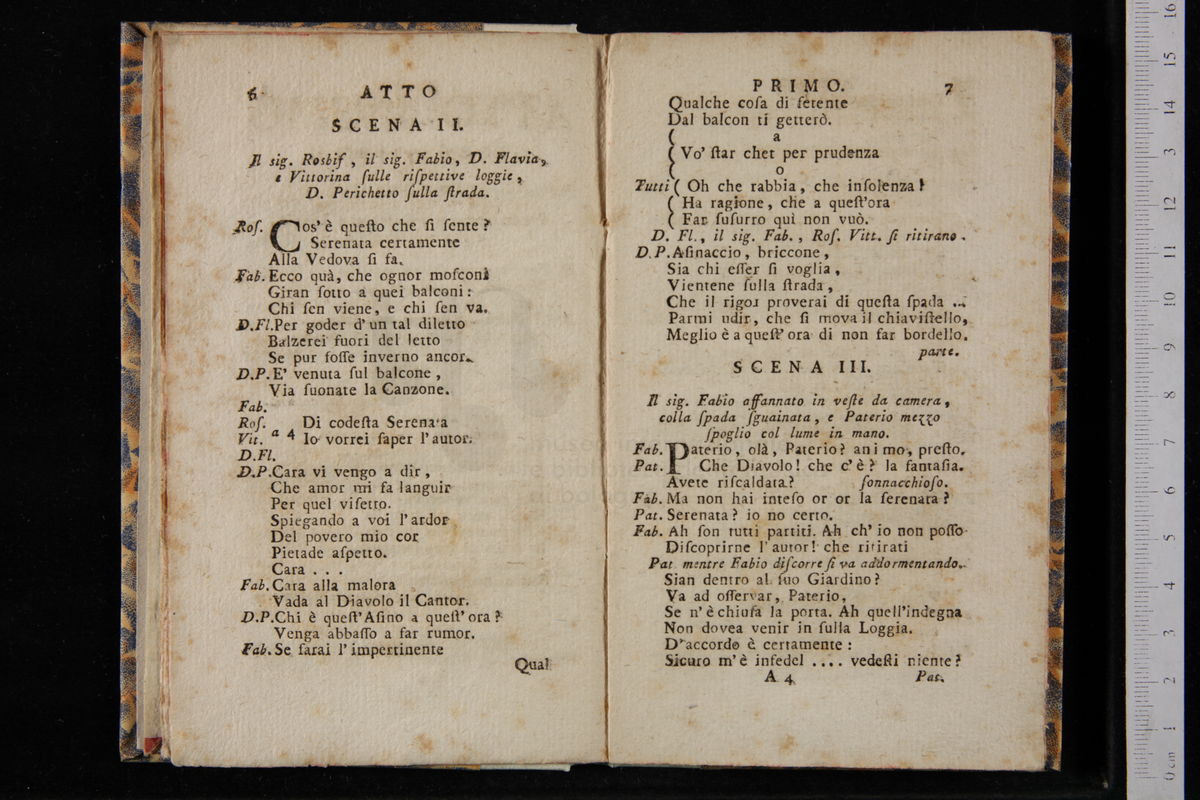 6 ATTO
SCENA II.
Il sig. Rosbif, il sig. Fabio, D. Flavia,
e Vittorina ſulle riſpettive loggie,
D. Perichetto ſulla ſtrada.
Roſ. Cos' è queſto che ſi ſente?
Serenata certamente
Alla Vedova ſi fa.
Fab. Ecco quà, che ognor moſconi
Giran ſotto a quei balconi:
Chi ſen viene, e chi ſen va.
D.Fl. Per goder d'un tal diletto
Balzerei fuori del letto
Se pur foſſe inverno ancor.
D.P. E' venuta ſul balcone,
Via ſuonate la Canzone.
Fab.
Roſ. Di codeſta Serenata
Vit. a 4 Io vorrei ſaper l'autor.
D.Fl.
D.P. Cara vi vengo a dir,
Che amor mi fa languir
Per quel viſetto.
Spiegando a voi l'ardor
Del povero mio cor
Pietade aſpetto.
Cara . . .
Fab. Cara alla malora
Vada al Diavolo il Cantor.
D.P. Chi è queſt'Aſino a queſt' ora?
Venga abbaſſo a far rumor.
Fab. Se farai l'impertinente
Qual
PRIMO. 7
Qualche coſa di fetente
Dal balcon ti getterò.
( a
( Vo' ſtar chet per prudenza
( o
Tutti ( Oh che rabbia, che inſolenza!
( Ha ragione, che a queſt'ora
( Far ſuſurro quì non vuò.
D. Fl., il sig. Fab., Roſ. Vitt. ſi ritirano.
D.P. Aſinaccio, briccone,
Sia chi eſſer ſi voglia,
Vientene ſulla ſtrada,
Che il rigor proverai di queſta ſpada ...
Parmi udir, che ſi mova il chiaviſtello,
Meglio è a queſt' ora di non far bordello.
parte.
SCENA III.
Il sig. Fabio affannato in veſte da camera,
colla ſpada ſguainata, e Paterio mezzo
ſpoglio col lume in mano.
Fab. Paterio, olà, Paterio? animo, preſto.
Pat. Che Diavolo! che c'è? la fantaſia.
Avete riſcaldata? ſonnacchioſo.
Fab. Ma non hai inteſo or or la ſerenata?
Pat. Serenata? io no certo.
Fab. Ah ſon tutti partiti. Ah ch' io non poſſo
Diſcoprirne l'autor! che ritirati
Pat. mentre Fabio diſcorre ſi va addormentando.
Sian dentro al ſuo Giardino?
Va ad oſſervar, Paterio,
Se n'è chiuſa la porta. Ah quell'indegna
Non dovea venir in ſulla Loggia.
D'accordo è certamente:
Sicuro m'è infedel .... vedeſti niente?
A 4 Pat.